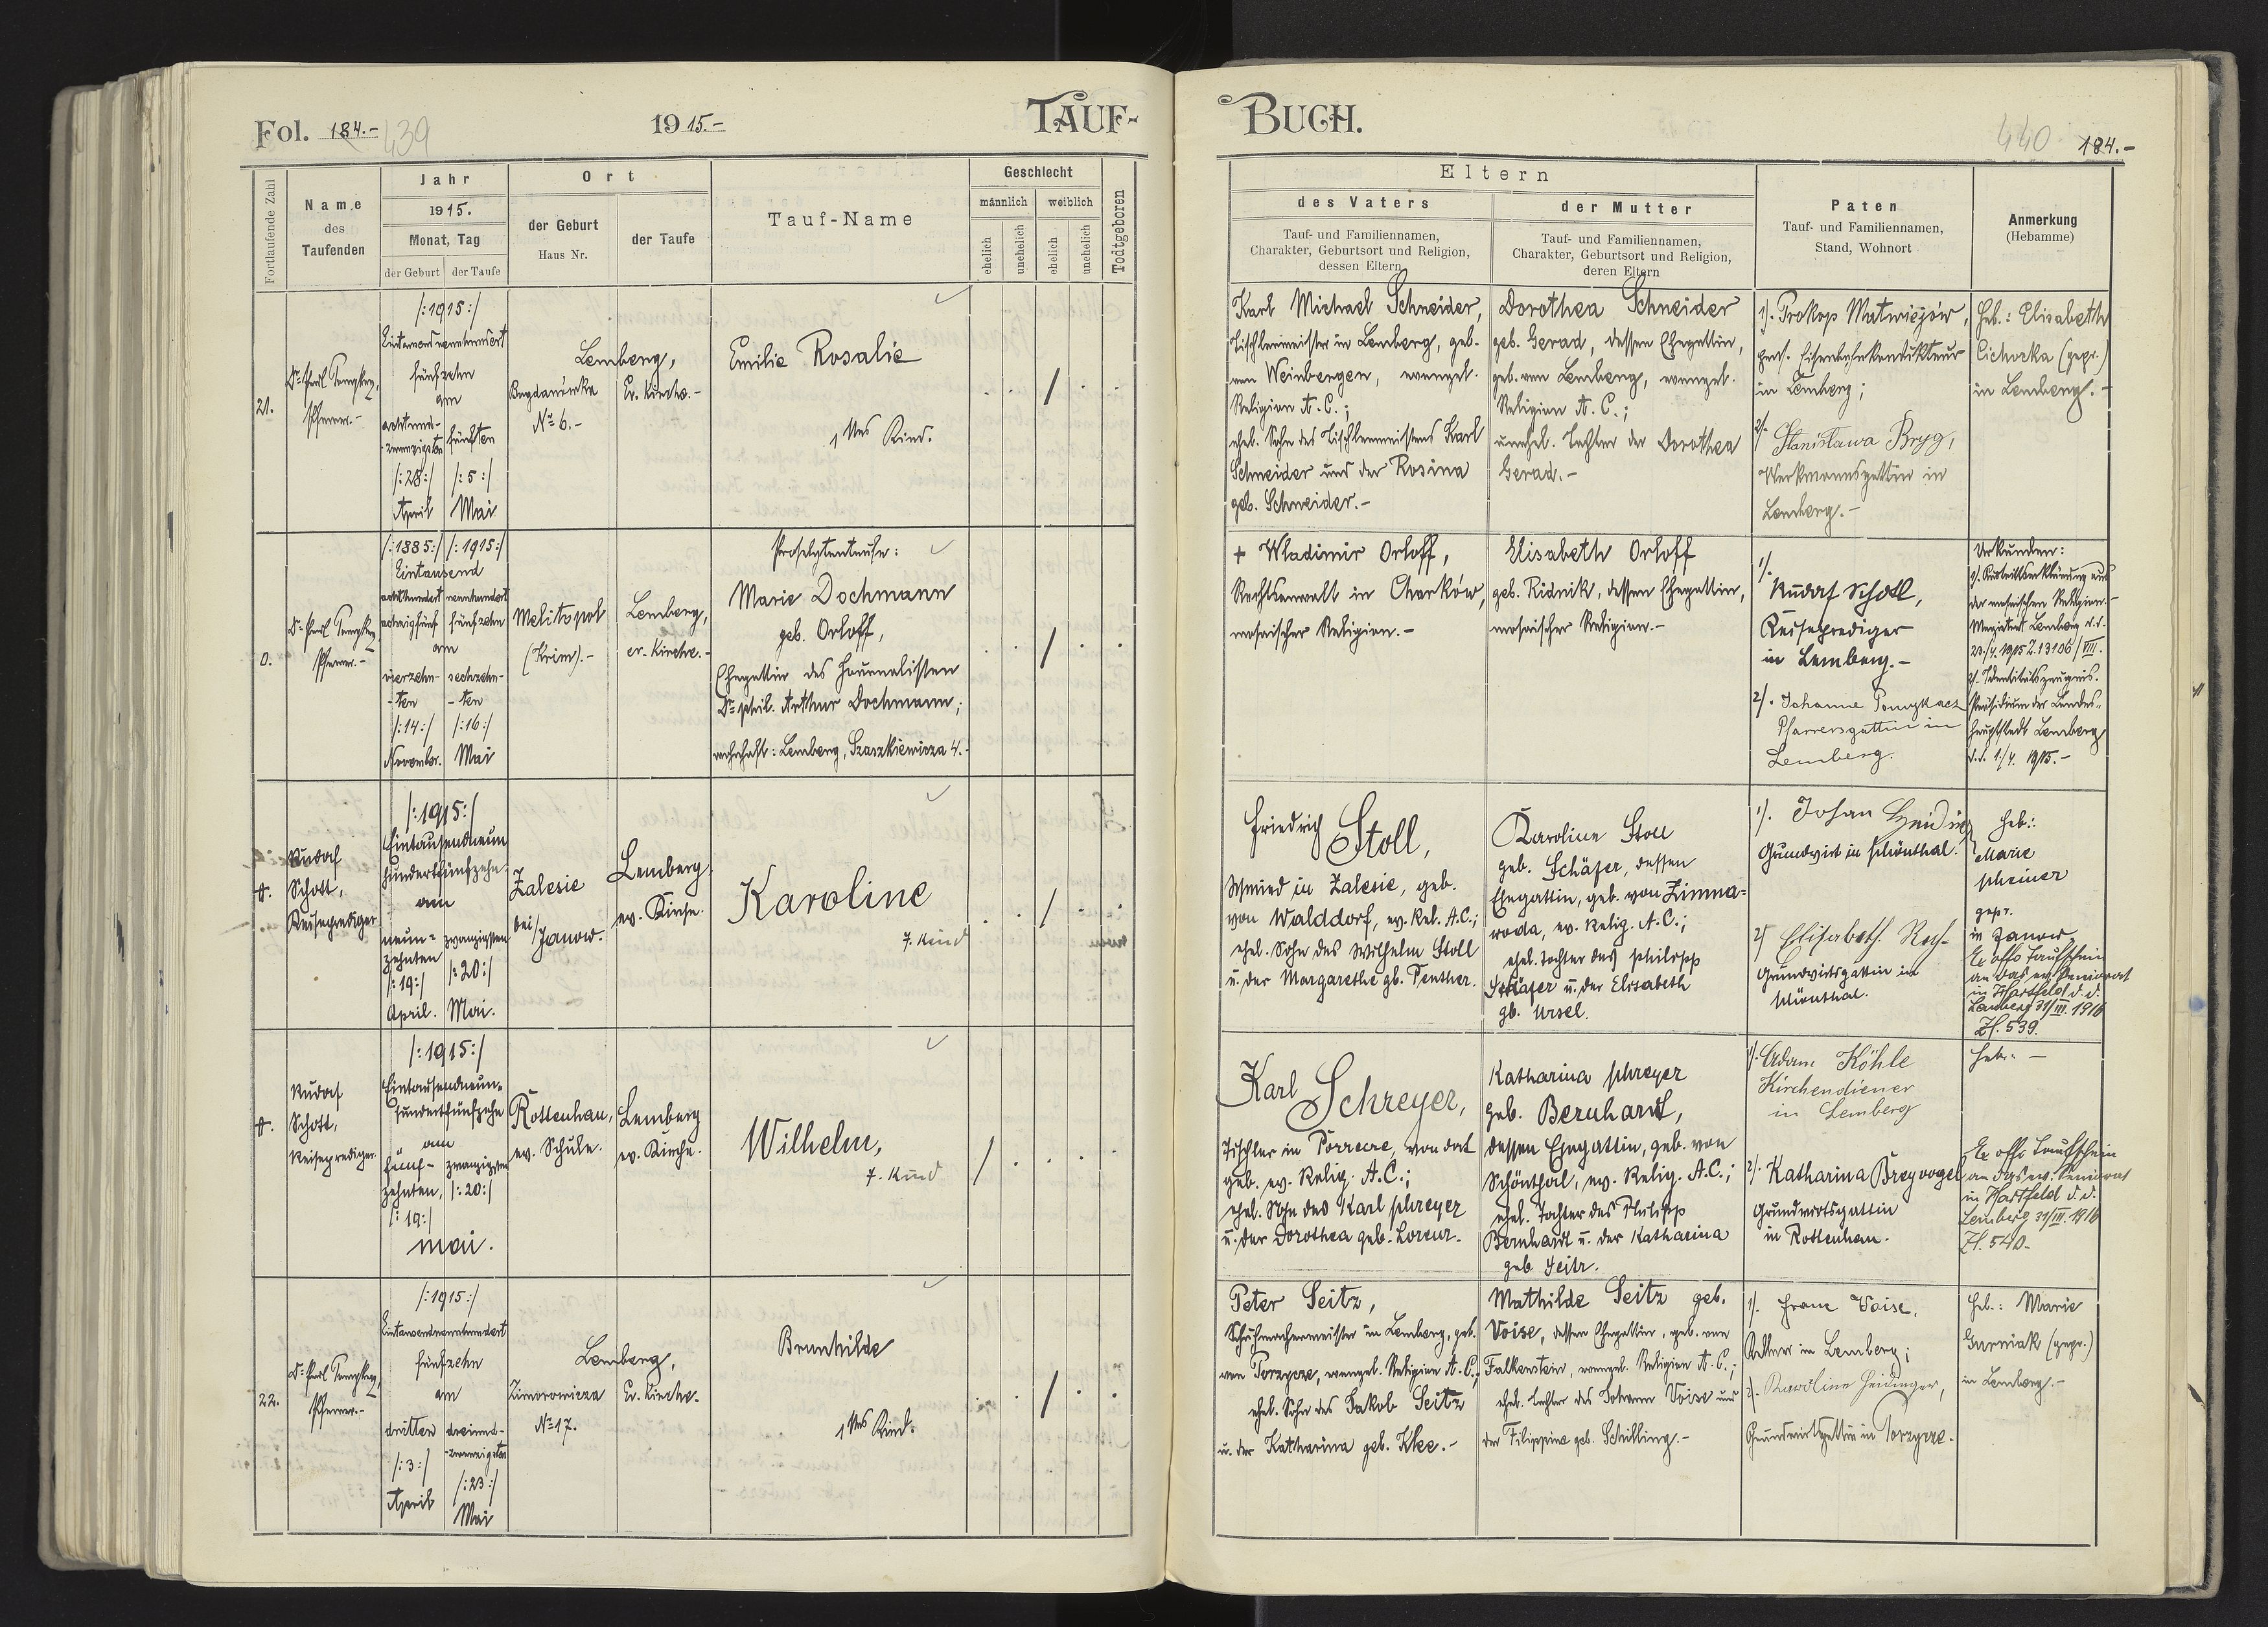 Fol. 184.- 439
1915.-
TAUF-
Fortlaufende Zahl
Name
des
Taufenden
Jahr
1915.
Monat, Tag
der Geburt
der Taufe
Ort
der Geburt
Haus Nr.
der Taufe
Tauf-Name
Geschlecht
männlich
weiblich
ehelich
unehelich
ehelich
unehelich
Todtgeboren
21.
Pfarrer.-
/:1915:/
fünfzehn
am
achtund-
-zwanzigsten
/:28:/
April
fünften
/:5:/
Mai
Lemberg,
Bogdanówka
№ 6.-
Ev. Kirche.-
Emilie Rosalie
1tes Kind.
0.
Pfarrer.-
/:1885:/ /:1915:/
Eintausend
achthundert neunhundert
achzigfünf fünfzehn
am
vierzehn-
-ten
/:14:/
Novembr.
sechzehn-
-ten
/:16:/
Mai
Melitopol
(Krim).-
Lemberg,
ev. Kirche.-
Proselytentaufe:
Marie Dochmann
geb. Orloff,
Ehegattin des Journalisten
Dr. phil. Arthur Dochmann;
wohnhaft: Lemberg, Szaszkiewicza 4.-
Rudolf
Schott,
Reiseprediger
/:1915:/
Eintausendneun
hundertfünfzehn
am
neun=
zehnten
/:19:/
April.
zwanzigsten
/:20:/
Mai.
Zalesie
bei Janow.
Lemberg
ev. Kirche.
Karoline
7. Kind
Rudolf
Schott,
Reiseprediger
/:1915:/
Eintausendneun=
hundertfünfzehn
am
fünf-
zehnten,
/:19:/
zwanzigsten
/:20:/
Mai.
Rottenhan,
ev. Schule.
Lemberg
ev. Kirche.
Wilhelm,
7. Kind
22.
Pfarrer.-
/:1915:/
Eintausendneunhundert
fünfzehn
am
dritten
/:3:/
April
dreiund-
-zwanzigsten
/:23:/
Mai
Lemberg,
Zimorowicza
№ 17.
Ev. Kirche.
Brunhilde
1tes Kind.
BUCH.
440 184.-
Eltern
des Vaters
Tauf- und Familiennamen,
Charakter, Geburtsort und Religion,
dessen Eltern
der Mutter
Tauf- und Familiennamen,
Charakter, Geburtsort und Religion,
deren Eltern
Paten
Tauf- und Familiennamen,
Stand, Wohnort
Anmerkung
(Hebamme)
Karl Michael Schneider,
Tischlermeister in Lemberg, geb.
von Weinbergen, evangel.
Religion A. C.;
ehel. Sohn des Tischlermeisters Karl
Schneider und der Rosina
geb. Schneider.-
Dorothea Schneider
geb. Gerad, dessen Ehegattin,
geb. von Lemberg, evangel.
Religion A. C.;
unehel. Tochter der Dorothea
Gerad.-
1). Prokop Matwiejów,
pens. Eisenbahnkondukteur
in Lemberg;
2). Stanisława Bryg,
Werkmannsgattin in
Lemberg.-
Heb.: Elisabeth
Cichorka (gepr.)
in Lemberg.-
+ Wladimir Orloff,
Rechtsanwalt in Charków,
mosaischer Religion.-
Elisabeth Orloff
geb. Ridnik, dessen Ehegattin,
mosaischer Religion.-
1).
Rudolf Schott,
Reiseprediger
in Lemberg.-
2). Johanne
Pfarrersgattin in
Lemberg.
Urkunden:
1). Austrittserklärung aus
der mosaischen Religion.-
Magistrat Lemberg d.d.
Z. 13106/VIII.
2). Identitätszeugnis.
Präsidium der Landes-
hauptstadt Lemberg
d.d. 1./4. 1915.-
Friedrich Stoll,
Schmied in Zalesie, geb.
von Walddorf, ev. Rel. A.C.;
ehel. Sohn des Wilhelm Stoll
u. der Margarethe gb. Tenther.
Karoline Stoll
geb. Schäfer, dessen
Ehegattin, geb. von Zimna=
woda, ev. Relig. A.C.;
ehel. Tochter des Philipp
Schäfer u. der Elisabeth
gb. Ursel.
1). Johan
Grundwirt in Schönthal.
2) Elisabeth
Grundwirtsgattin in
Schönthal.
Heb.:
Marie
gepr.
in Janow
Ex offo Taufschein
an das ev. Seniorat
in Hartfeld d.d.
Lemberg 31/III. 1916
Zl. 539.
Karl Schreyer,
Tischler in Porzecze, von dort
geb. ev. Relig. A.C.;
ehel. Sohn des Karl Schreyer
u. der Dorothea geb. Lorenz.
Katharina Schreyer
geb. Bernhardt,
dessen Ehegattin, geb. von
Schönthal, ev. Relig. A.C.;
ehel. Tochter des Philipp
Bernhardt u. der Katharina
geb Seitz.
1). Adam Köhle
Kirchendiener
in Lemberg
2). Katharina Breyvogel
Grundwirtsgattin
in Rottenhan.
Heb.: -
Ex offo Taufschein
an das ev. Seniorat
in Hartfeld d.d.
Lemberg 31/III. 1916
Zl. 540-
Peter Seitz,
Schuhmachermeister in Lemberg, geb.
von Porzycze, evangel. Religion A. C.;
ehel. Sohn des Jakob Seitz
u. der Katharina geb. Klee.-
Mathilde Seitz geb.
Voise, dessen Ehegattin, geb. von
Falkenstein, evangel. Religion A. C.;
ehel. Tochter des Johann Voise und
der Filippine geb. Schilling.-
1). Franz Voise,
in Lemberg;
2). Karoline Heidinger,
Grundwirtsgattin in Porzycze.
Heb.: Marie
Gurniak (gepr.)
in Lemberg.-